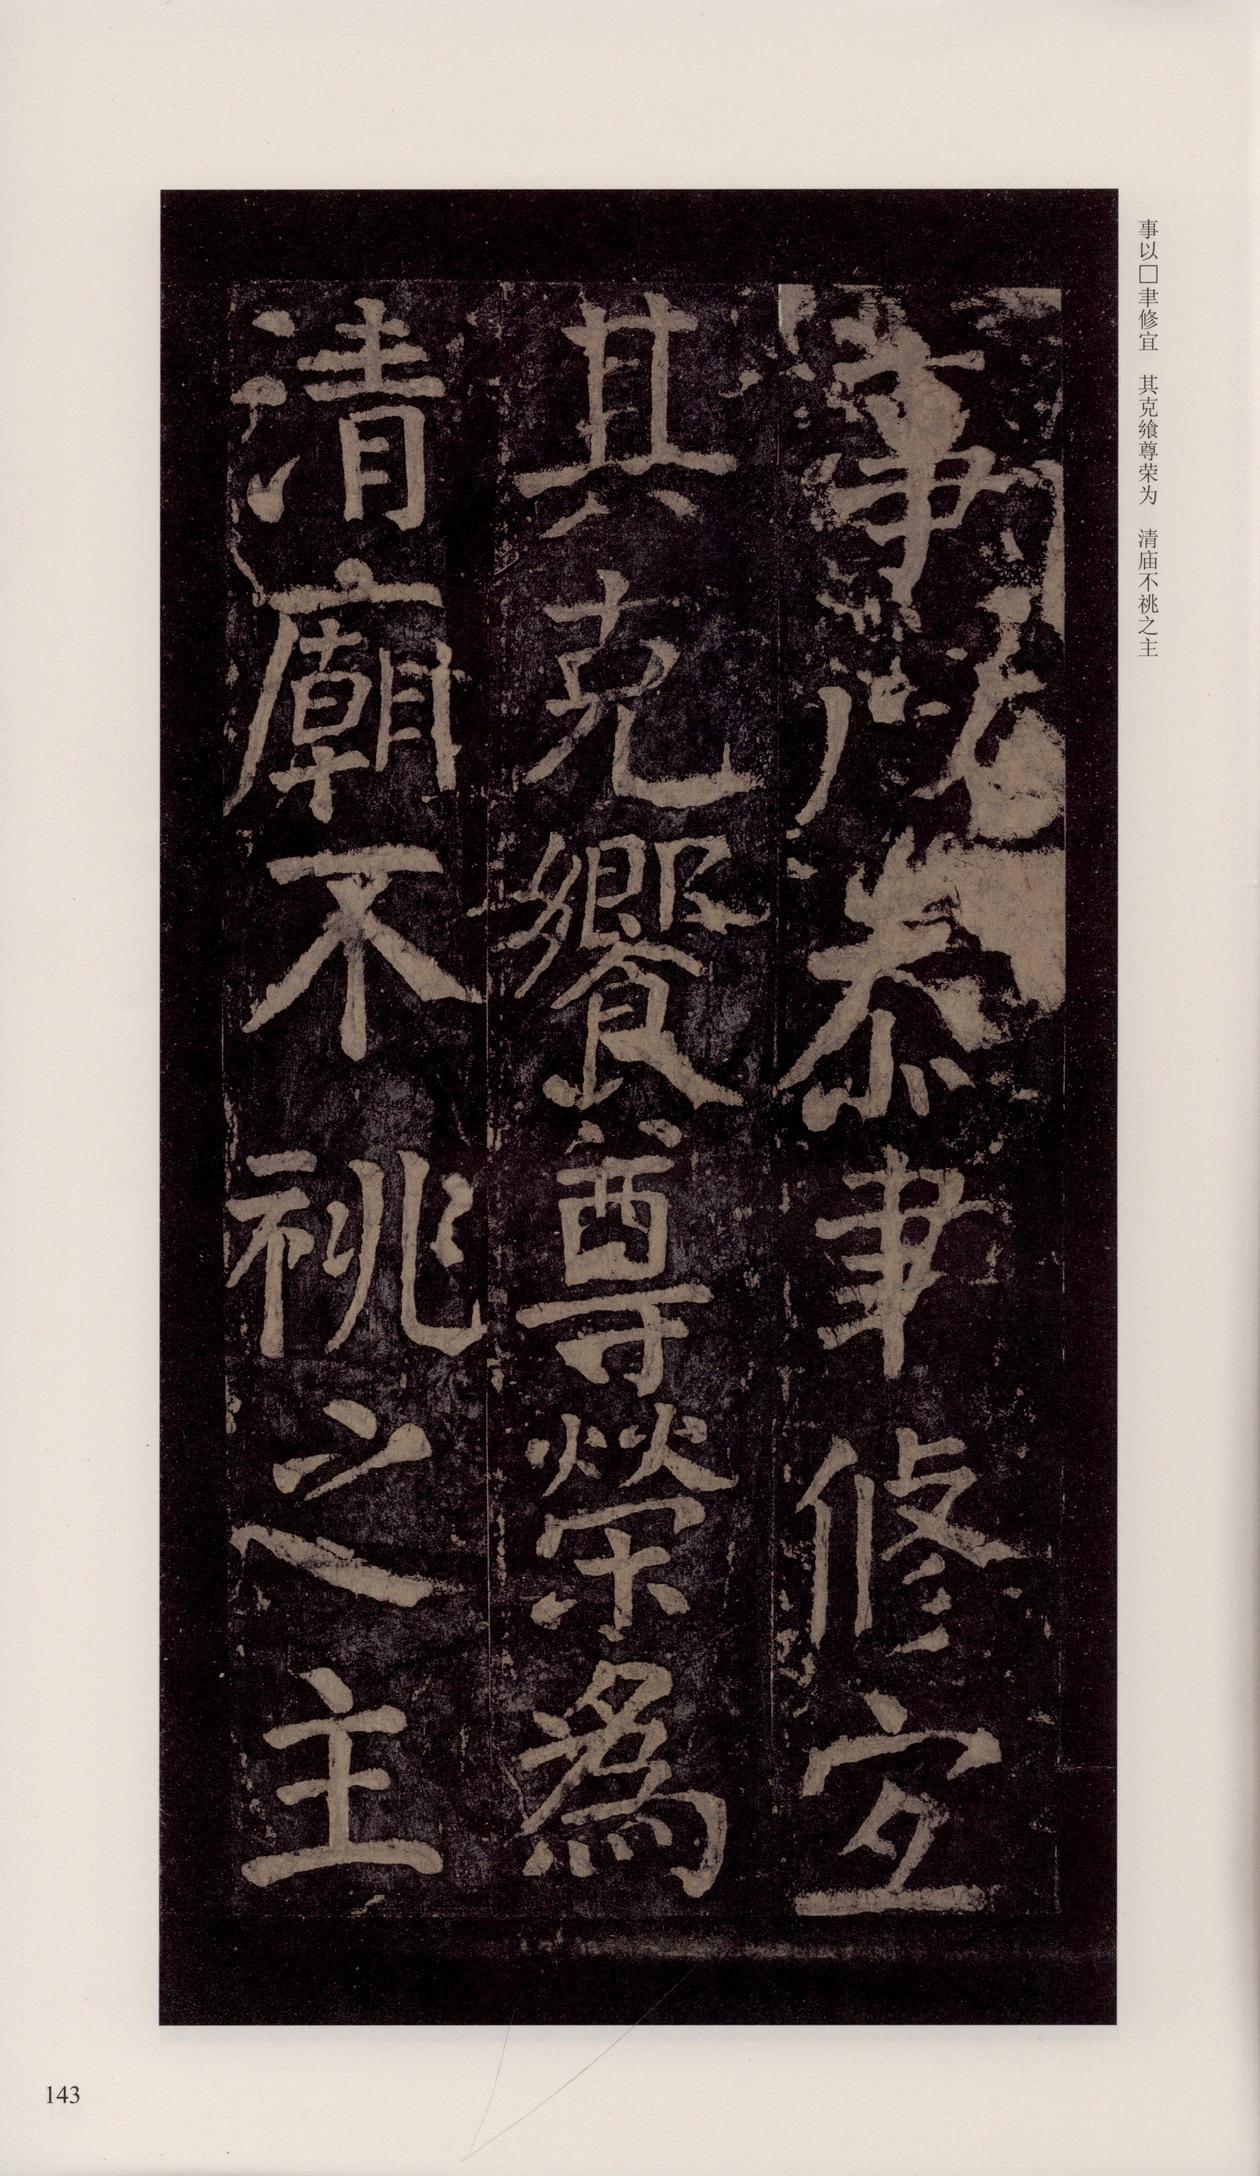 事以□聿修宜　其克飨尊荣为　清庙不祧之主
事以恭聿修宜
其克饗尊榮為
清廟不祧之主
143